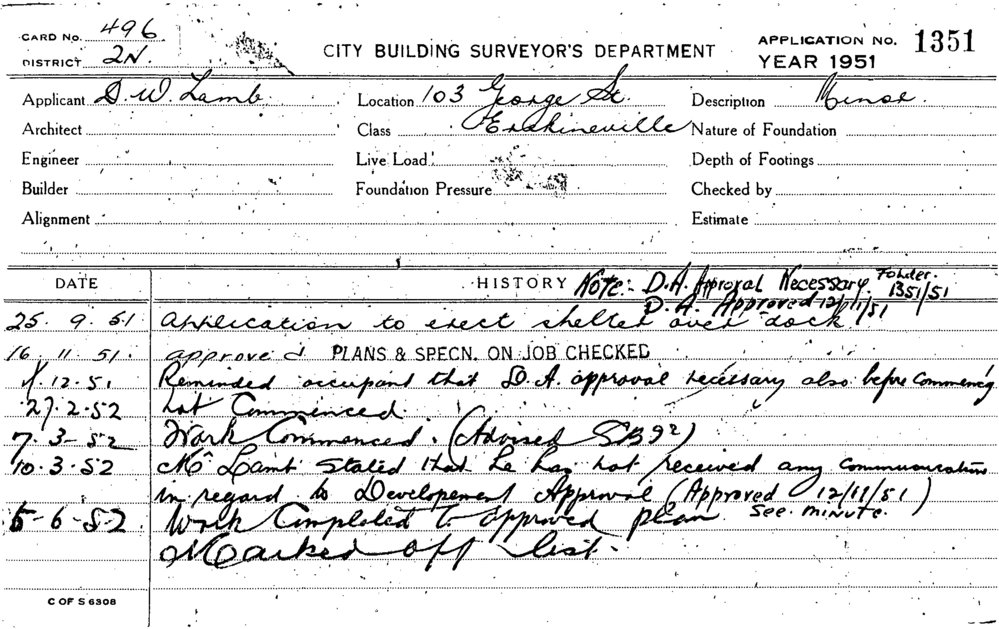 CARD No. 496
DISTRICT 2N.
CITY BUILDING SURVEYOR'S DEPARTMENT
APPLICATION NO. 1351
YEAR 1951
Applicant D. W. Lamb.
Location 103 George St.
Description Minor.
Architect
Class Erskineville
Nature of Foundation
Engineer
Live Load
Depth of Footings
Builder
Foundation Pressure
Checked by
Alignment
Estimate
DATE
HISTORY Note:- D.A. Approval Necessary. Folder. 1351/51
D. A. Approved 12/11/51
25. 9. 51 Application to erect shelter over dock
16. 11. 51. approved PLANS & SPECN. ON JOB CHECKED
12.51 Reminded occupant that D.A. approval necessary also before commencg
27.2.52 not Commenced.
7. 3-52 Work Commenced. (Advised SB92)
10.3.52 Mr Lamb stated that he has not received any communication
in regard to Developement Approval (Approved 12/11/51)
see minute.
5-6-52 Work Completed to approved plan
Marked off list.
C OF S 6308